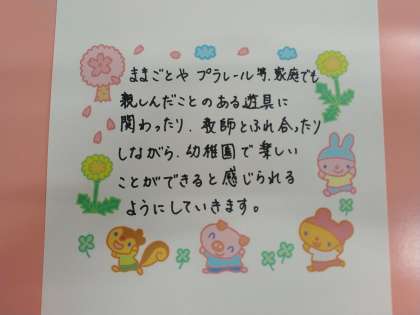 ままごとや プラレール等、家庭でも
親しんだことのある遊具に
関わったり、教師とふれ合ったり
しながら、幼稚園で楽しい
ことができると感じられる
ようにしていきます。